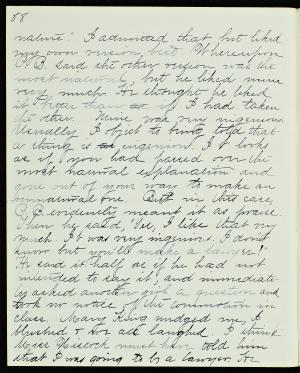 88
nature." I admitted that but liked
my own version, best. Whereupon
P. B. said the other version was the
most natural, but he liked mine
very much. He thought he liked
it better than if I had taken
the other. Mine was very ingenious.
Usually I object to being told that
a thing is ingenious. It looks
as if you had passed over the
most natural explanation and
gone out of your way to make an
unnatural one. But in this case,
P. B. evidently meant it as praise.
Then he said, "Yes, I like that very
much. It was very ingenious. I don't
know but you'll make a lawyer!"
He said it half as if he had not
intended to say it, and immediate-
ly asked another girl a question and
took no notice of the commotion in
class. Mary King nudged me, I
blushed & we all laughed. I think
Miss Hiscock must have told him
that I was going to be a lawyer. He